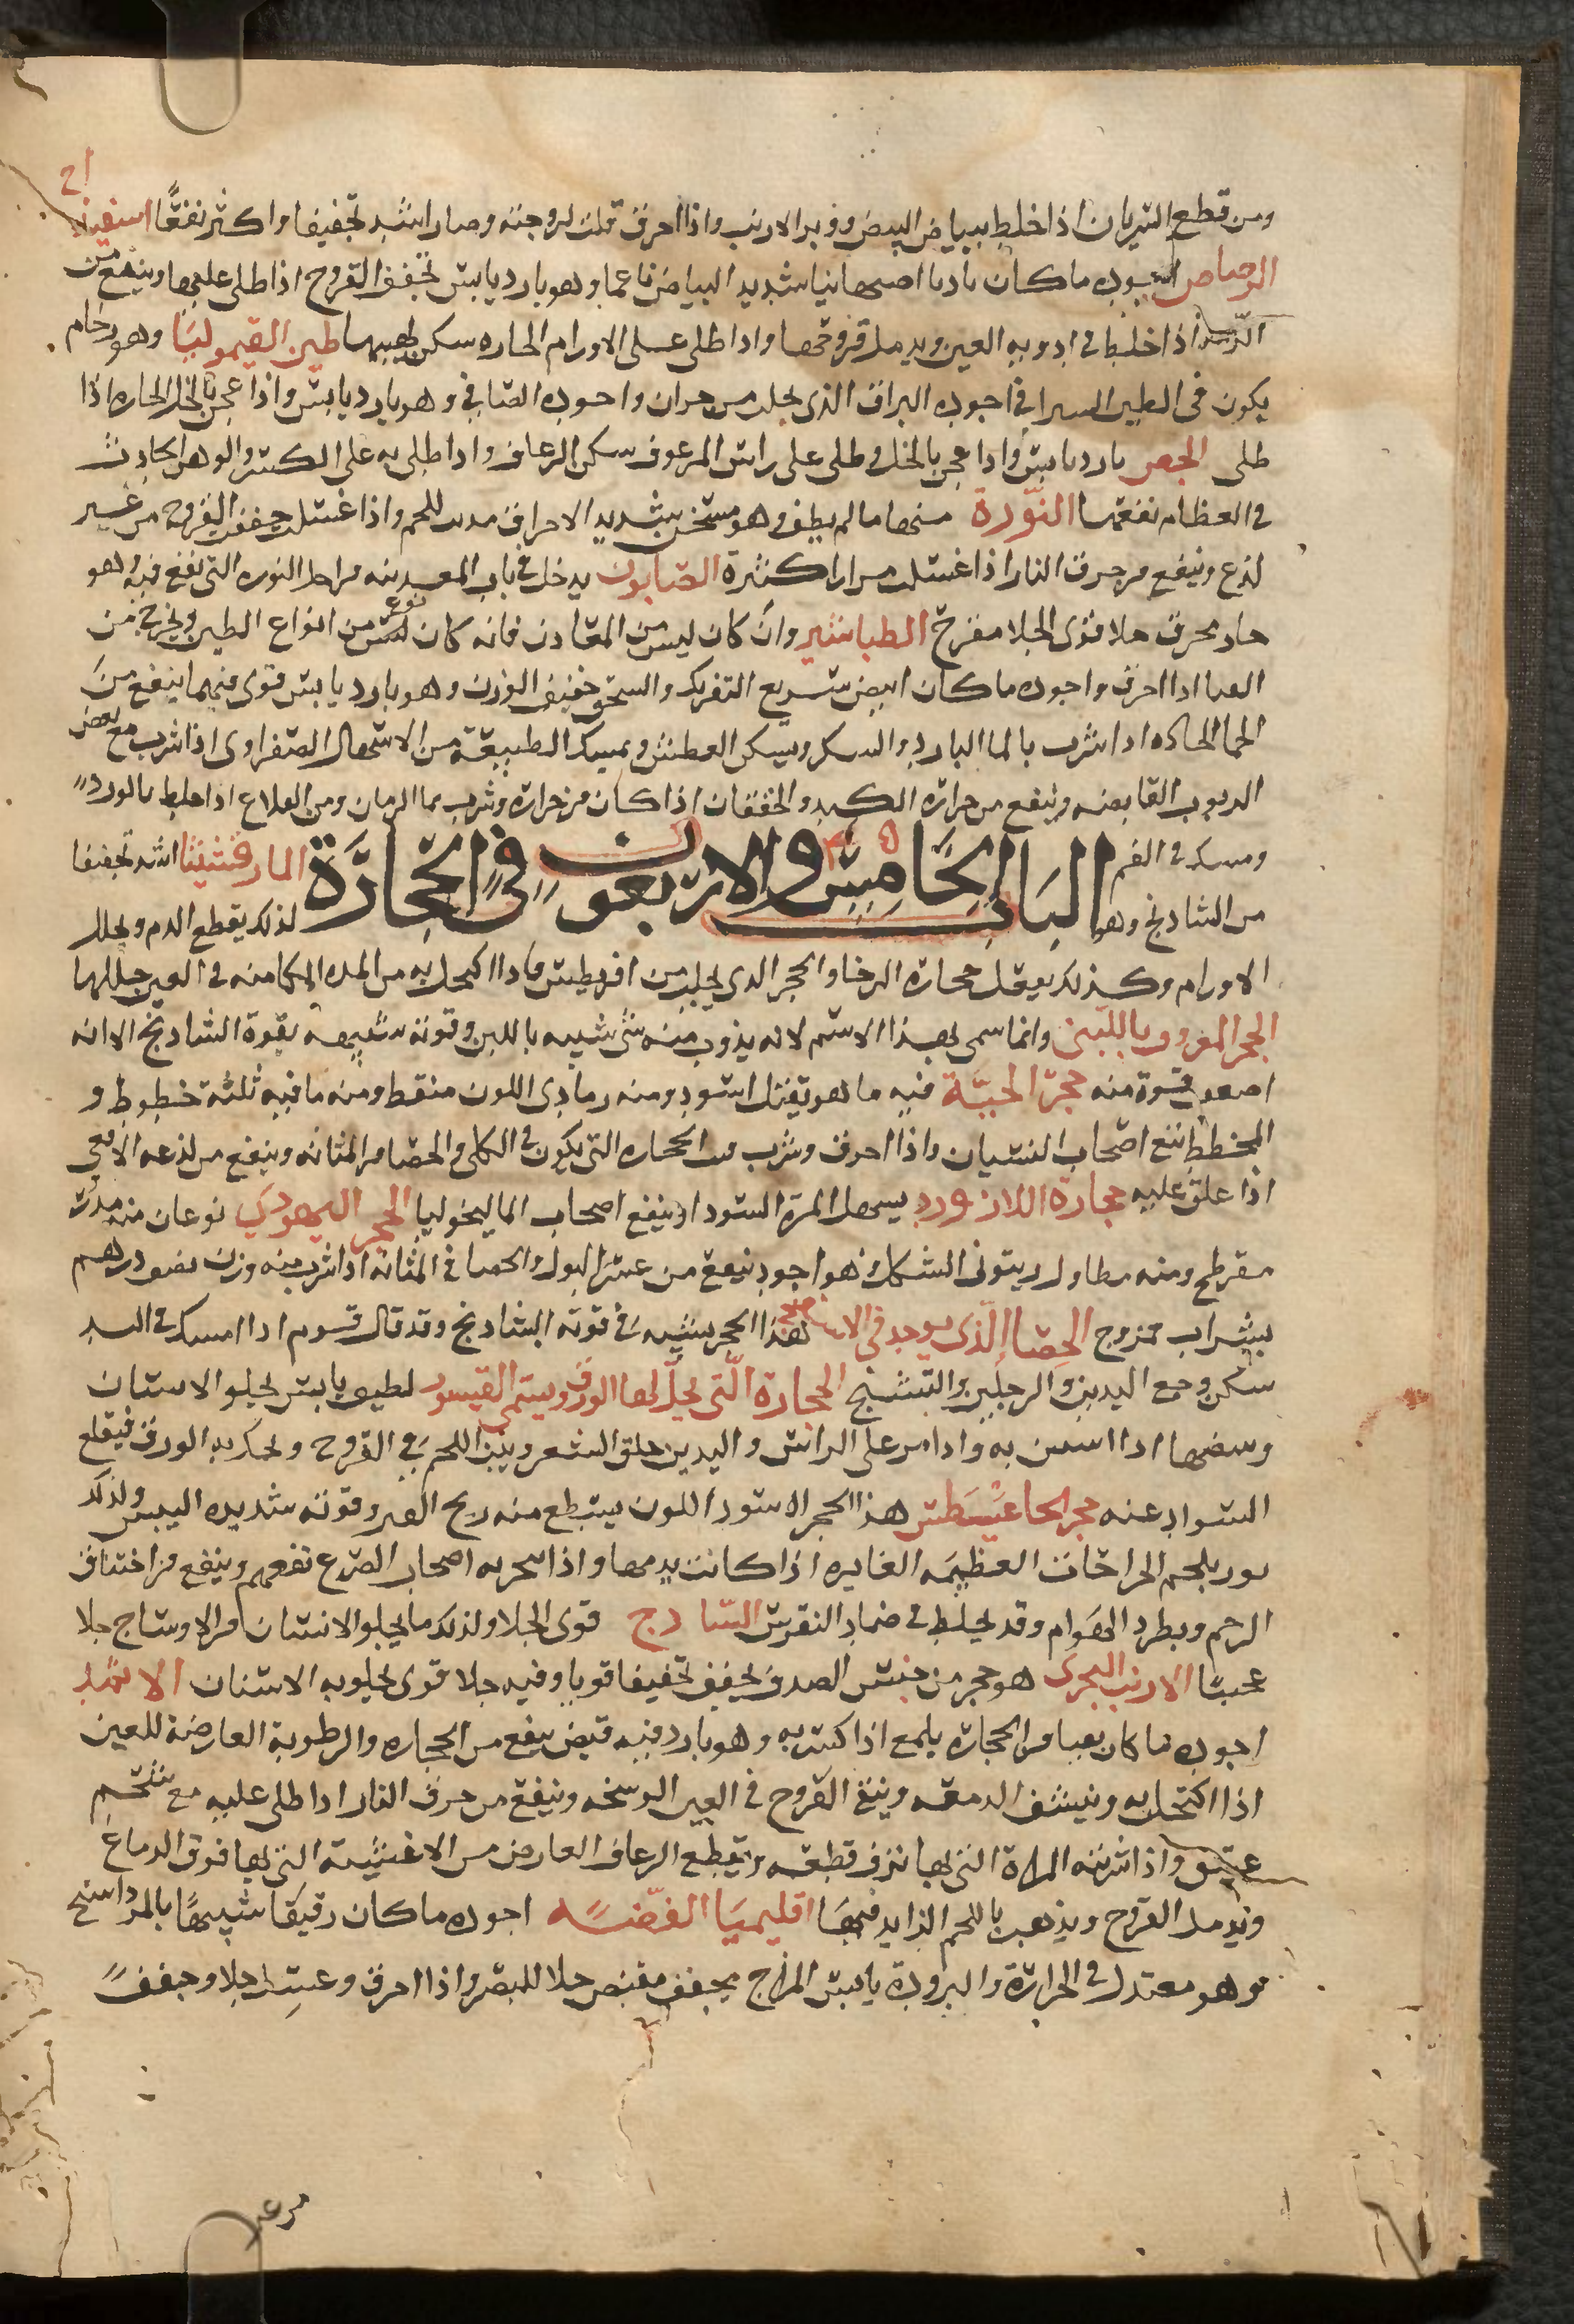 اح
ومن قطع الشريان اذا خلط ببياض البيض ووبر الارنب واذا احرق قلت لزوجته وصار اشد تجفيفا واكثر نفعًا اسفيذاج
الرصاص اجوده ما كان باديا اصبهانيا شديد البياض ناعما وهو بارد يابس تجفف القروح اذا طلى عليها وينفع من
الرمد اذا خلط فى ادويه العين ويدمل قروحها واذا طلى على الاورام الحاره سكن لهيبها طين القيموليا وهو رخام
يكون فى الطين السيرافى اجوده البراق الذى يجلب من حران واجوده الصافى وهو بارد يابس واذا عجن بالخل الحاره اذا
طلى الجص بارد يابس واذا عجن بالخل وطلى على راس المرعوف سكن الرعاف واذا طلى به على الكسر والوهن الحادث
فى العظام نفعها النورة منها ما لم يطفى وهو مسخن شديد الاحراق مذيب للحم واذا غسلت جففت القروح من غير
لذع وينفع من حرق النار اذا غسلت مرارا كثيرة الصابون يدخل فى باب المعدنيه من اجل النوره التى تقع فيه وهو
حاد محرق جلا قوى الجلا مقرح الطباشير وان كان ليس من المعادن فانه كان نوع من انواع الطين ويخرج من
القنا اذا احرق واجوده ما كان ابيض سريع التفريك والسحق خفيف الوزن وهو بارد يابس قوى فيهما ينفع من
الحما الحاده اذا شرب بالما البارد والسكر ويسكن العطش ويمسك الطبيعة من الاسهال الصفراوى اذا شرب مع بعض
الربوب القابضه وينفع من حراره الكبد والخفقان اذا كان من حرارة وشرب بما الرمان ومن القلاع اذا خلط بالورد
ومسك فى الفم
الباب الخامس والاربعون فى الحجارة
المارقشيثا اشد تجفيفا
من الشادنج وهو
لذلك يقطع الدم ويحلل
الاورام وكذلك يفعل حجارة الرخا والحجر الذى يجلب من افريطيس فاذا اكتحل به من المده الكامنه فى العين حللها
الحجر المعروف باللبنى وانما سمى بهذا الاسم لانه يذوب منه شى شبيه باللبن وقوته شبيهه بقوة الشادنج الا انه
اضعف قوة منه حجر الحيّة فيه ما هو ثقيل اسود ومنه رمادى اللون منقط ومنه ما فيه ثلثة خطوط و
المخطط ينفع اصحاب النسيان واذا احرق وشرب فتت الحجاره التى يكون فى الكلى والحصا من المثانه وينفع من لذعه الافعى
اذا علق عليه حجارة اللازورد يسهل المرة السودا وينفع اصحاب الماليخوليا الحجر اليهودى نوعان منه مدور
مفرطح ومنه مطاول زيتونى الشكل وهو اجود ينفع من عسر البول والحصا فى المثانه اذا شرب منه وزن نصف درهم
بشراب ممزوج الحصا الذى يوجد فى الاسفنج هذا الحجر يشبه فى قوته الشادنج وقد قال قوم اذا امسك فى اليد
سكن وجع اليدين والرجلين والتشنج الحجارة التى يحك بها الورق ويسمى القيسور لطيف يابس يجلو الاسنان
ويبيضها اذا استن به واذا مر على الراس واليدين حلق الشعر وينبت اللحم فى القروح ويحك به الورق فيقلع
السواد عنه حجر الجاغيسطس هذا الحجر الاسود اللون يسطع منه ريح القير وقوته شديده اليبس ولذلك
يلحم الجراحات العظيمه الغايره اذا كانت بدمها واذا بخر به اصحاب الصرع نفعهم وينفع من اختناق
الرحم ويطرد الهوام وقد يخلط فى ضماد النقرس السادج قوى الجلا ولذلك ما يجلو الاسنان من الاوساخ جلا
عجيبًا الارنب البحرى هو حجر من جنس الصدف يجفف تجفيفا قويا وفيه جلا قوى يجلو به الاسنان الاثمد
اجوده ما كان نقيا من الحجارة يلمع اذا كسر به وهو بارد فيه قبض ينفع من الحجاره والرطوبة العارضة للعين
اذا اكتحل به وينشف الدمعه وينقى القروح فى العين الوسخه وينفع من حرق النار اذا طلى عليه مع شحم
عتيق واذا شربته المراة التى بها نزف قطعه ويقطع الرعاف العارض من الاغشية التى بها فوق الدماغ
ويدمل القروح ويذهب باللحم الزايد فيها اقليميا الفضّه اجوده ما كان رقيقا شبيهًا بالمرداسنج
وهو معتدل فى الحرارة والبرودة يابس المزاج يجفف مقبض جلا للبصر واذا احرق وغسل جلا وجفف